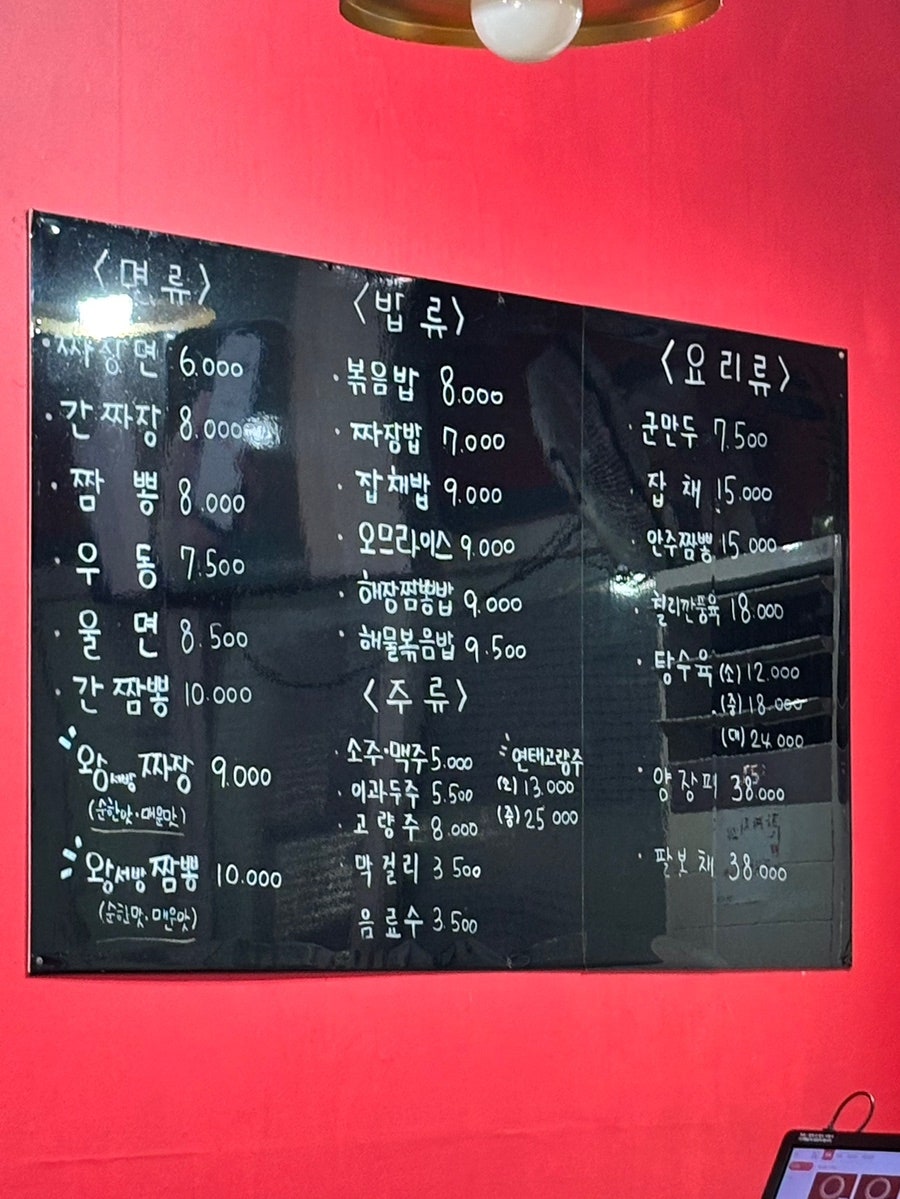 <면류>
· 짜장면 6.000
· 간짜장 8.000
· 짬뽕 8.000
· 우동 7.500
· 울면 8.500
· 간짬뽕 10.000
왕서방 짜장 9.000
(순한맛·매운맛)
왕서방 짬뽕 10.000
(순한맛·매운맛)
<밥류>
· 볶음밥 8.000
· 짜장밥 7.000
· 잡채밥 9.000
· 오므라이스 9.000
· 해장짬뽕밥 9.000
· 해물볶음밥 9.500
<주류>
· 소주·맥주 5.000
· 이과두주 5.500
· 고량주 8.000
· 막걸리 3 500
· 음료수 3.500
연태고량주
(소) 13.000
(중) 25 000
<요리류>
· 군만두 7.500
· 잡채 15.000
· 안주짬뽕 15.000
· 칠리깐풍육 18.000
· 탕수육 (소) 12.000
(중) 18.000
(대) 24.000
· 양장피 38.000
· 팔보채 38.000